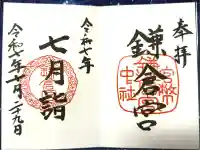 奉拝
鎌倉宮
官幣中社
令和七年
七月詣
令和七年七月二十九日